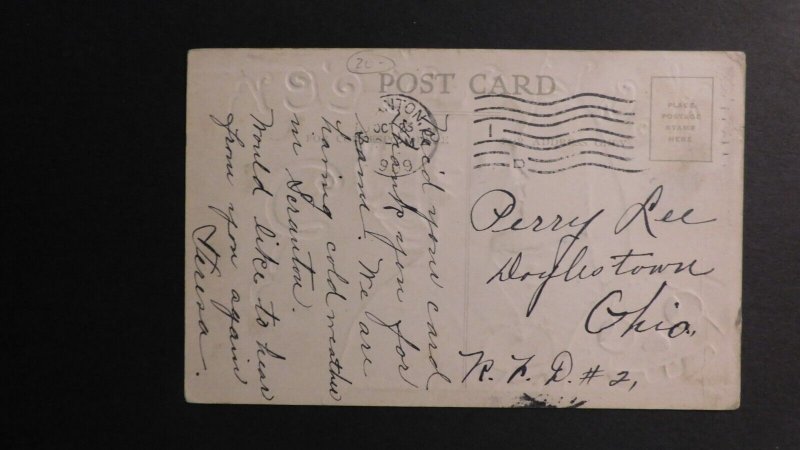 20-
POST CARD
PLACE
POSTAGE
STAMP
HERE
Rec'd your card
thank you for
same. We are
having cold weather
in Scranton.
Would like to hear
from you again
Theresa.
Perry Lee
Doylestown
Ohio.
R. F. D. # 2,